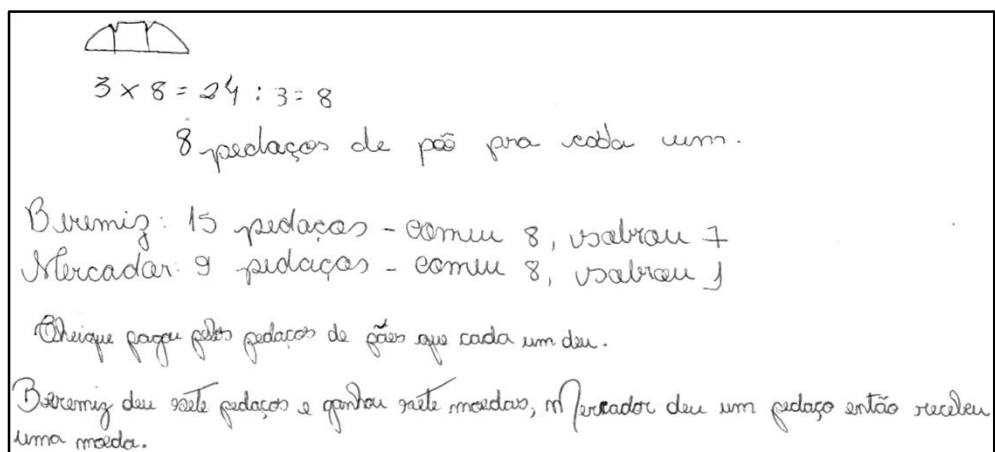 3 x 8 = 24 : 3 = 8
8 pedaços de pão pra cada um.
Beremiz: 15 pedaços - comeu 8, sobrou 7
Mercador: 9 pedaços - comeu 8, sobrou 1
Cheique pagou pelos pedaços de pães que cada um deu.
Beremiz deu sete pedaços e ganhou sete moedas, Mercador deu um pedaço então recebeu
uma moeda.